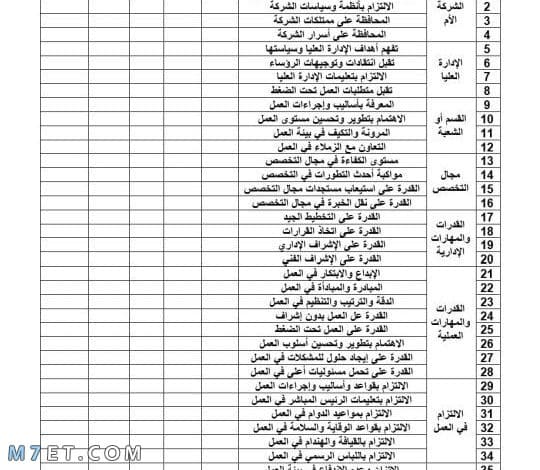 الشركة
الأم
2 الالتزام بأنظمة وسياسات الشركة
3 المحافظة على ممتلكات الشركة
4 المحافظة على أسرار الشركة
الإدارة
العليا
5 تفهم أهداف الإدارة العليا وسياستها
6 تقبل انتقادات وتوجيهات الرؤساء
7 الالتزام بتعليمات الإدارة العليا
8 تقبل متطلبات العمل تحت الضغط
القسم أو
الشعبة
9 المعرفة بأساليب وإجراءات العمل
10 الاهتمام بتطوير وتحسين مستوى العمل
11 المرونة والتكيف في بيئة العمل
12 التعاون مع الزملاء في العمل
مجال
التخصص
13 مستوى الكفاءة في مجال التخصص
14 مواكبة أحدث التطورات في التخصص
15 القدرة على استيعاب مستجدات مجال التخصص
16 القدرة على نقل الخبرة في مجال التخصص
القدرات
والمهارات
الإدارية
17 القدرة على التخطيط الجيد
18 القدرة على اتخاذ القرارات
19 القدرة على الإشراف الإداري
20 القدرة على الإشراف الفني
القدرات
والمهارات
العملية
21 الإبداع والابتكار في العمل
22 المبادرة والمبادأة في العمل
23 الدقة والترتيب والتنظيم في العمل
24 القدرة عل العمل بدون إشراف
25 القدرة على العمل تحت الضغط
26 الاهتمام بتطوير وتحسين أسلوب العمل
27 القدرة على إيجاد حلول للمشكلات في العمل
28 القدرة على تحمل مسئوليات أعلى في العمل
الالتزام
في العمل
29 الالتزام بقواعد وأساليب وإجراءات العمل
30 الالتزام بتعليمات الرئيس المباشر في العمل
31 الالتزام بمواعيد الدوام في العمل
32 الالتزام بقواعد الوقاية والسلامة في العمل
33 الالتزام بالقيافة والهندام في العمل
34 الالتزام باللباس الرسمي في العمل
35
M7ET.COM